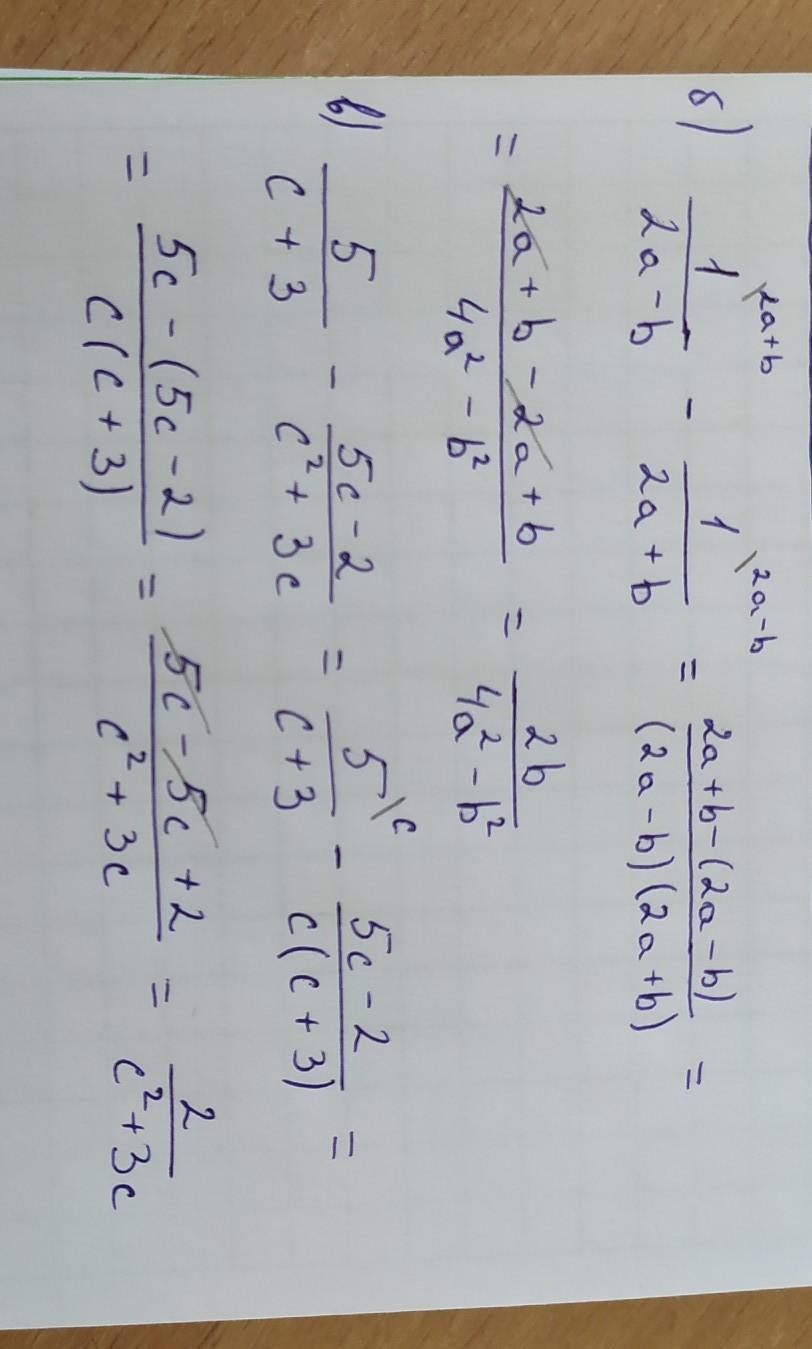 б) 1/(2a-b) \2a+b - 1/(2a+b) \2a-b = (2a+b-(2a-b))/((2a-b)(2a+b)) =
= (2a+b-2a+b)/(4a²-b²) = 2b/(4a²-b²)
в) 5/(c+3) - (5c-2)/(c²+3c) = 5/(c+3) \c - (5c-2)/(c(c+3)) =
= (5c-(5c-2))/(c(c+3)) = (5c-5c+2)/(c²+3c) = 2/(c²+3c)